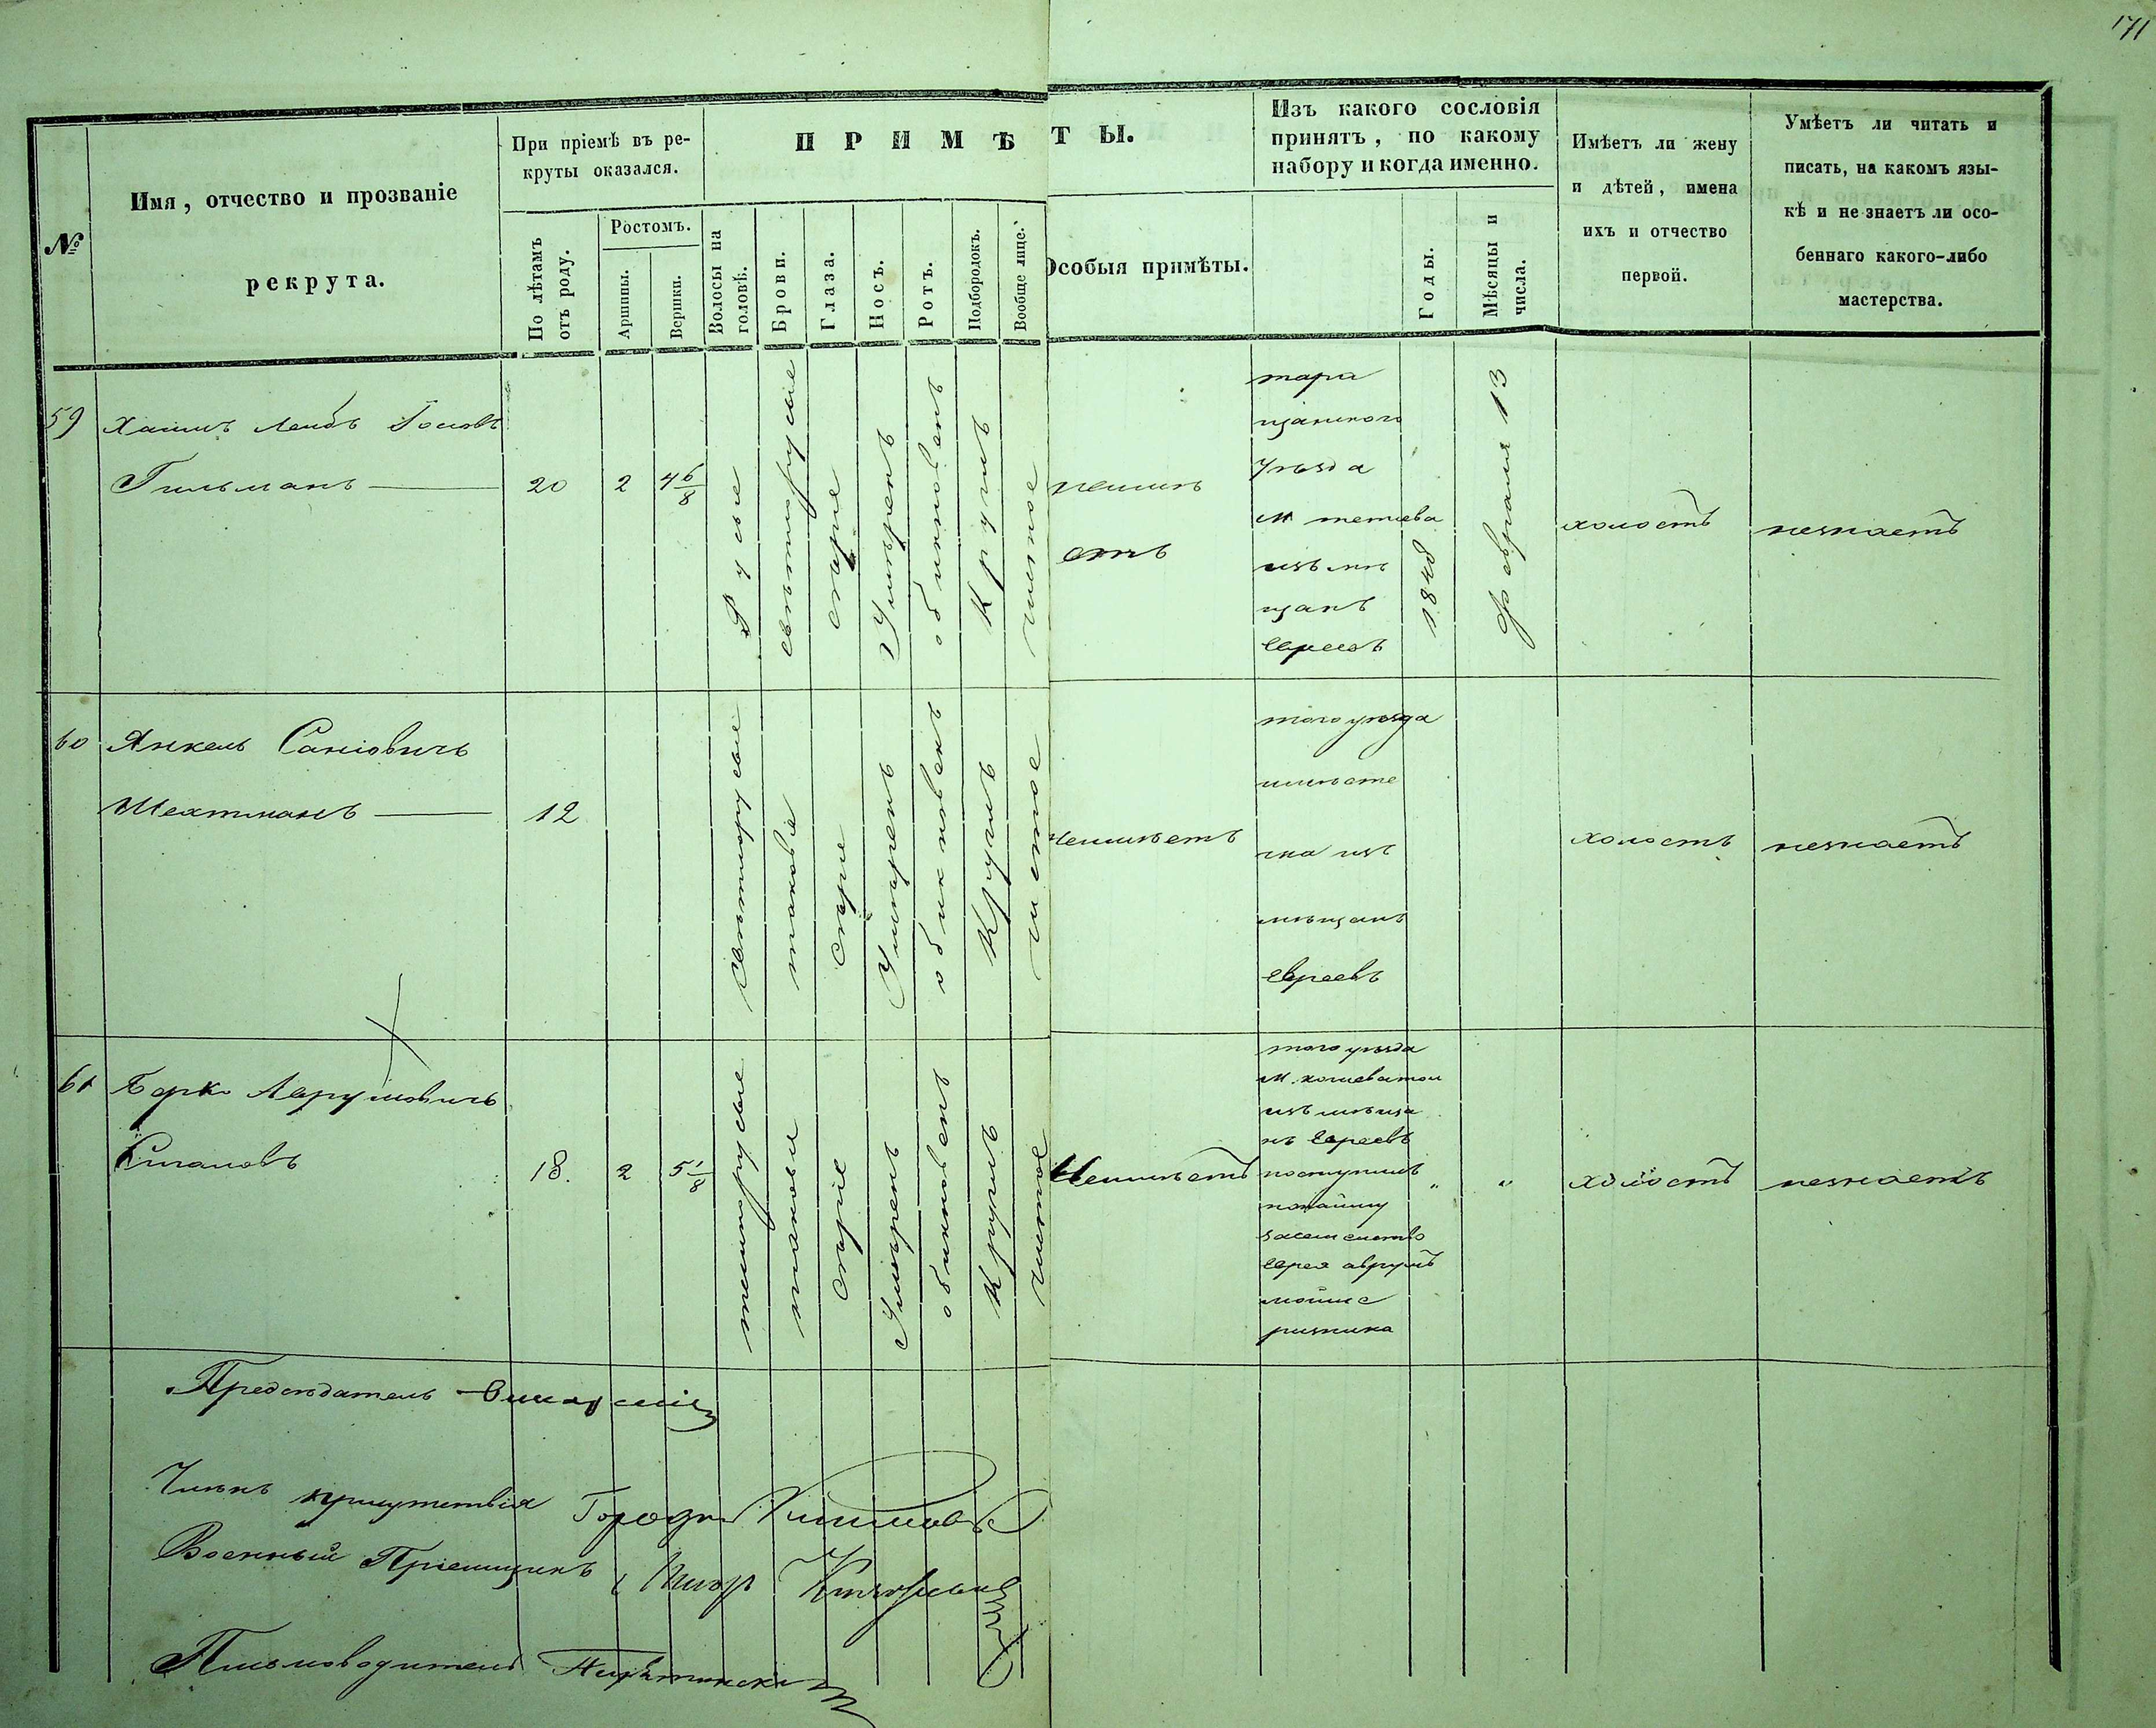 171
№
Имя, отчество и прозваніе
рекрута.
При пріемѣ въ ре-
круты оказался.
По лѣтамъ
отъ роду.
Ростомъ.
Аршины.
Вершки.
ПРИМѢТЫ.
Волосы на
головѣ.
Брови.
Глаза.
Носъ.
Ротъ.
Подбородокъ.
Вообще лице.
Особыя примѣты.
Изъ какого сословія
принятъ, по какому
набору и когда именно.
Годы.
Мѣсяцы и
числа.
Имѣетъ ли жену
и дѣтей, имена
ихъ и отчество
первой.
Умѣетъ ли читать и
писать, на какомъ язы-
кѣ и не знаетъ ли осо-
беннаго какого-либо
мастерства.
59
Хаимъ Лейбъ
Гильманъ
20
2
4 6/8
Русые
свѣтлорусые
сѣрые
Умѣренъ
обикновенъ
Круглъ
чистое
неимѣ
етъ
тара
щанского
Уѣзда
м тетіева
изъ мѣ
щанъ
евреевъ
1848
февраля 13
холостъ
незнаетъ
60
Янкель Саніовичъ
Шехтманъ
12
свѣтлорусые
таковіе
сѣріе
Умѣренъ
обикновенъ
Круглъ
чистое
неимѣетъ
того уѣзда
мѣсте
чка изъ
мѣщанъ
евреевъ
холостъ
незнаетъ
61
Берко Аврумовичъ
18.
2
5 1/8
темнорусые
таковы
сѣріе
Умѣренъ
обикновенъ
Круглъ
чистое
Неимѣетъ
того уѣзда
изъ мѣща
нъ евреевъ
поступилъ
по найму
за семейство
еврея аврумъ
мошка
резника
"
"
холостъ
незнаетъ
Предсѣдатель
Членъ присутствія
Военный Пріемщикъ
Письмоводитель